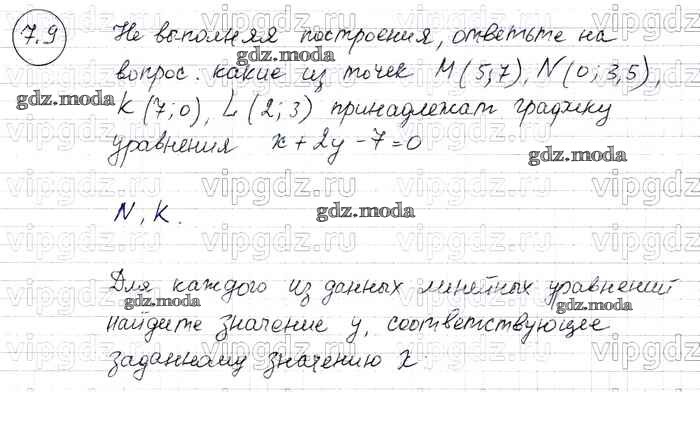 7.9
Не выполняя построения, ответьте на
вопрос: какие из точек M(5;7), N(0;3,5),
K(7;0), L(2;3) принадлежат графику
уравнения x+2y-7=0
N, K.
Для каждого из данных линейных уравнений
найдите значение y, соответствующее
заданному значению x
vipgdz.ru
gdz.moda